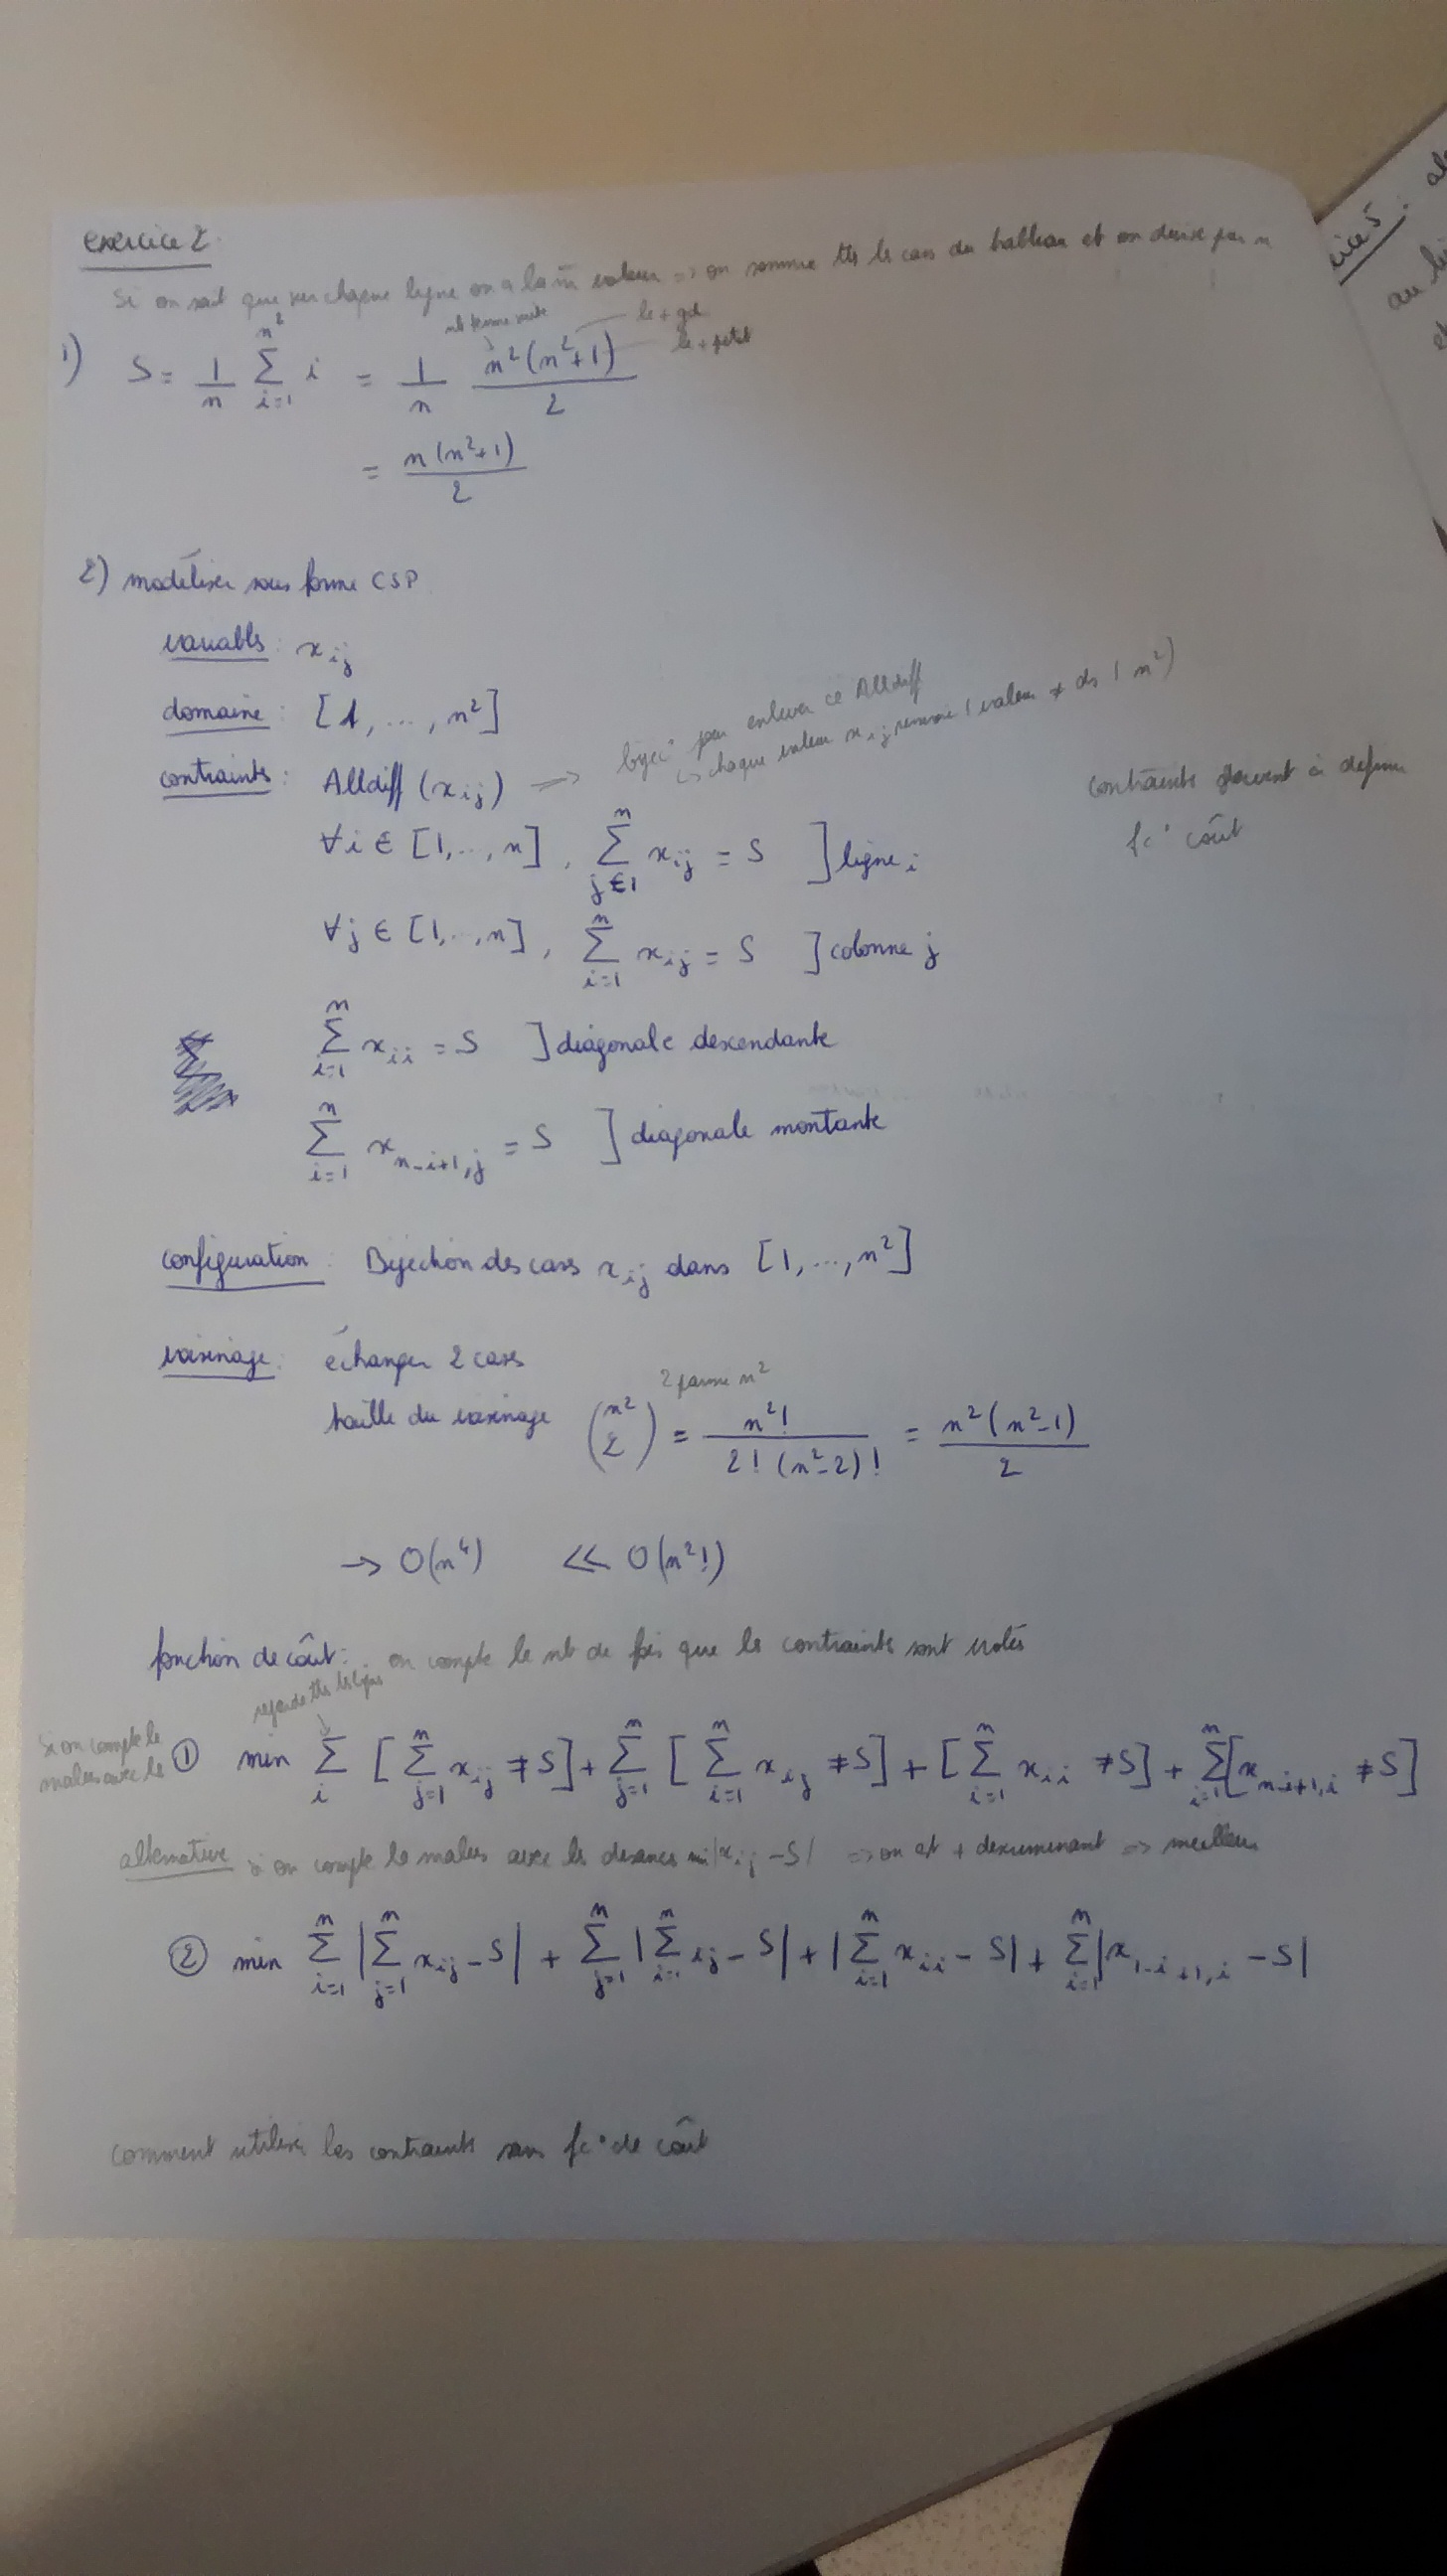 exercice 2
Si on sait que sur chaque ligne on a la m̂ valeur => on somme tts ls cases du tableau et on divise par n
nb terme suite
le + gd
le + petit
1) S = 1/n ∑_{i=1}^{n²} i = 1/n n²(n²+1)/2
= n(n²+1)/2
2) modéliser sous forme CSP
variables : x_{ij}
domaine : [1, ..., n²]
contraints : Alldiff (x_{ij}) => bijec° pour enlever ce Alldiff
↳ chaque valeur x_{ij} 1 valeur ≠ ds 1 n²)
contraints servent à définir
fc° coût
∀i ∈ [1,..,n], ∑_{j∈1}^{n} x_{ij} = S ] ligne i
∀j ∈ [1,..,n], ∑_{i=1}^{n} x_{ij} = S ] colonne j
∑_{i=1}^{n} x_{ii} = S ] diagonale descendante
∑_{i=1}^{n} x_{n-i+1,j} = S ] diagonale montante
configuration : Bijection des cases x_{ij} dans [1, ..., n²]
voisinage : échanger 2 cases
2 parmi n²
taille du voisinage (n² 2) = n²! / 2! (n²-2)! = n²(n²-1)/2
→ O(n⁴) << O(n²!)
fonction de coût : on compte le nb de fois que ls contraints sont violés
regarde tts ls lignes
Si on compte le
malus avec ls
① min ∑_i [∑_{j=1}^{n} x_{ij} ≠ S] + ∑_{j=1}^{n} [∑_{i=1}^{n} x_{ij} ≠ S] + [∑_{i=1}^{n} x_{ii} ≠ S] + ∑_{i=1}^{n} [x_{n-i+1,i} ≠ S]
alternative si on compte le malus avec ls distances |x_{ij} - S| => on est + discriminant => meilleur
② min ∑_{i=1}^{n} |∑_{j=1}^{n} x_{ij} - S| + ∑_{j=1}^{n} |∑_{i=1}^{n} x_{ij} - S| + |∑_{i=1}^{n} x_{ii} - S| + ∑_{i=1}^{n} |x_{1-i+1,i} - S|
comment utiliser les contraints sans fc° de coût